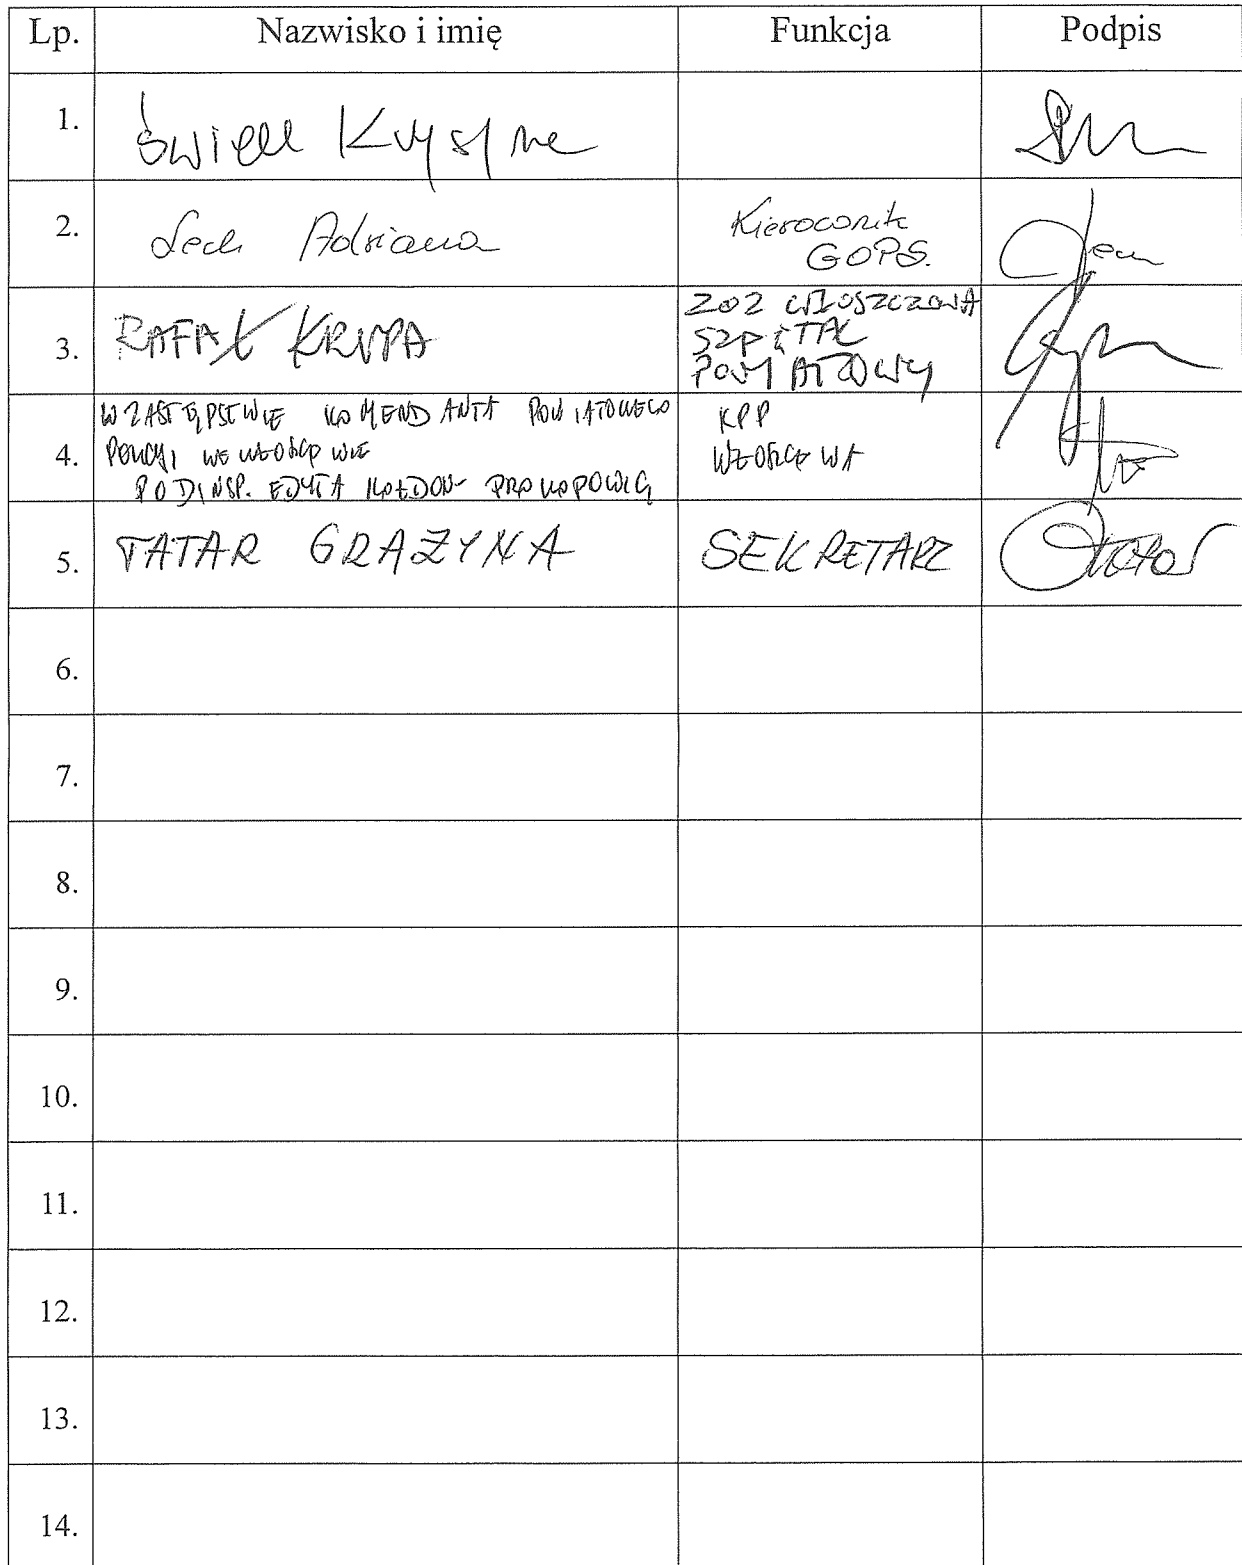 Lp. Nazwisko i imię Funkcja Podpis
1. Krystyna
2. Lech Adriana Kierownik
GOPS.
3. RAFAŁ KRUPA ZOZ WŁOSZCZOWA
SZPITAL
POWIATOWY
4. W ZASTĘPSTWIE KOMENDANTA POWIATOWEGO KPP
POLICJI WE WŁOSZCZOWIE WŁOSZCZOWA
PODINSP. EDYTA
5. TATAR GRAŻYNA SEKRETARZ
6.
7.
8.
9.
10.
11.
12.
13.
14.